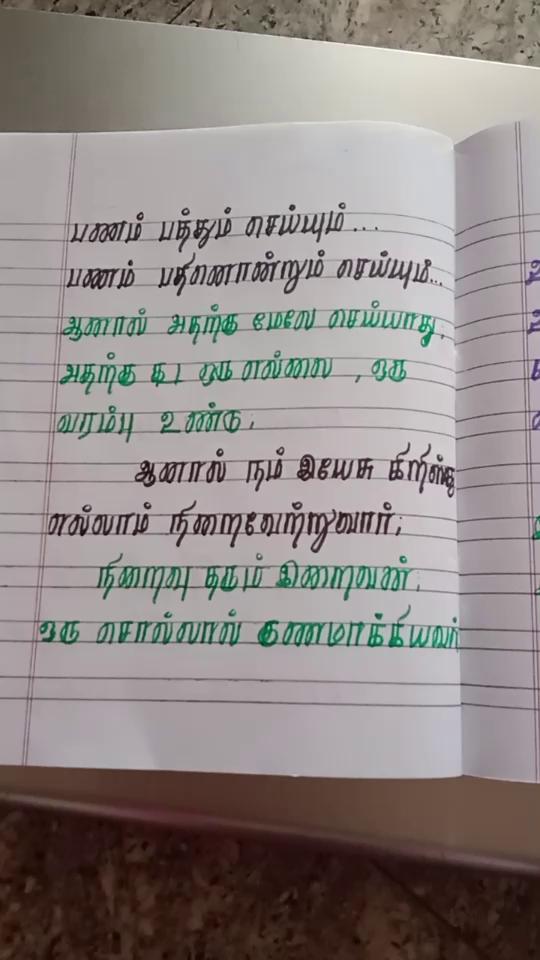 பணம் பத்தும் செய்யும்...
பணம் பதினொன்றும் செய்யும்...
ஆனால் அதற்கு மேலே செய்யாது.
அதற்கு கூட ஒரு எல்லை , ஒரு
வரம்பு உண்டு.
ஆனால் நம் இயேசு கிறிஸ்து
எல்லாம் நிறைவேற்றுவார்.
நிறைவு தரும் இறைவன்.
ஒரு சொல்லால் குணமாக்கியவர்